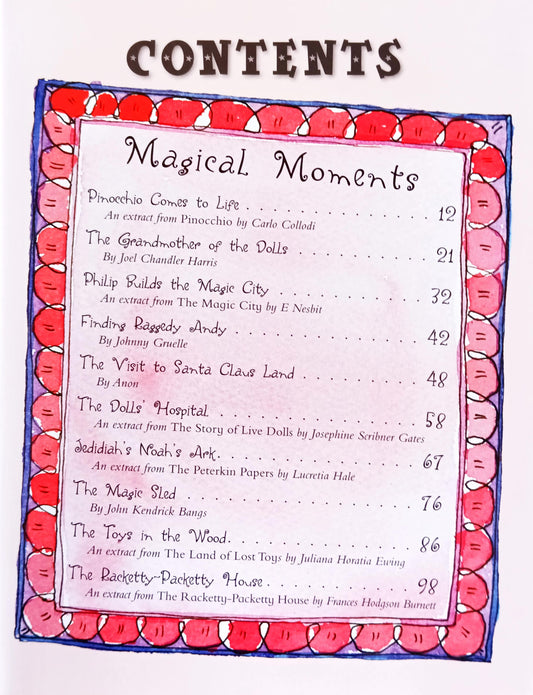 CONTENTS
Magical Moments
Pinocchio Comes to Life . . . . . . . . . . . . . . . . 12
An extract from Pinocchio by Carlo Collodi
The Grandmother of the Dolls . . . . . . . . . . . . 21
By Joel Chandler Harris
Philip Builds the Magic City . . . . . . . . . . . . . 32
An extract from The Magic City by E Nesbit
Finding Raggedy Andy . . . . . . . . . . . . . . . . 42
By Johnny Gruelle
The Visit to Santa Claus Land . . . . . . . . . . . 48
By Anon
The Dolls' Hospital . . . . . . . . . . . . . . . . . 58
An extract from The Story of Live Dolls by Josephine Scribner Gates
Jedidiah's Noah's Ark. . . . . . . . . . . . . . . . . 67
An extract from The Peterkin Papers by Lucretia Hale
The Magic Sled . . . . . . . . . . . . . . . . . . . 76
By John Kendrick Bangs
The Toys in the Wood. . . . . . . . . . . . . . . . 86
An extract from The Land of Lost Toys by Juliana Horatia Ewing
The Racketty-Packetty House . . . . . . . . . . . . . 98
An extract from The Racketty-Packetty House by Frances Hodgson Burnett